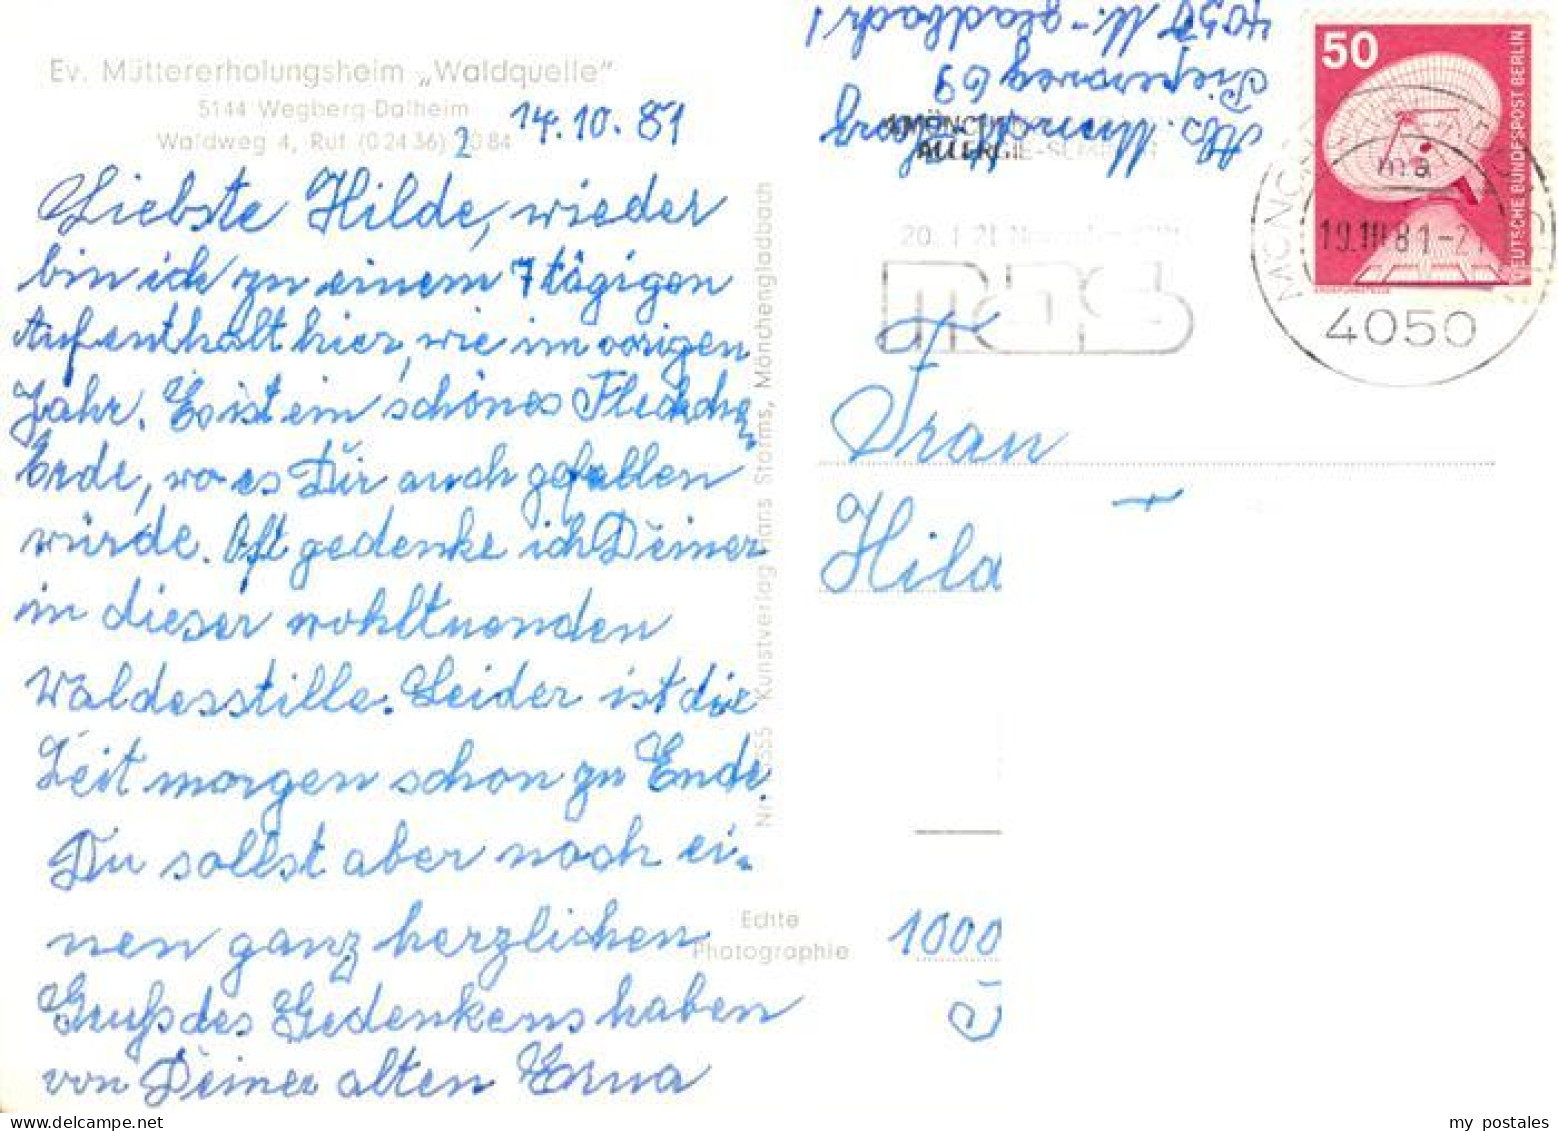 Ev. Müttererholungsheim „Waldquelle"
5144 Wegberg-Dalheim
Waldweg 4, Ruf (02436) 2084
14.10.81
Liebste Hilde, wieder
bin ich zu einem 7tägigen
Aufenthalt hier, wie im vorigen
Jahr. Es ist ein schönes Fleckchen
Erde, wo es Dir auch gefallen
würde. Oft gedenke ich Deiner
in dieser wohltuenden
Waldesstille. Leider ist die
Zeit morgen schon zu Ende.
Du sollst aber noch ei-
nen ganz herzlichen
Gruß des Gedenkens haben
von Deiner alten Erna
Kunstverlag Hans Storms, Mönchengladbach
Echte
Photographie
Abs.
69
4050 M.-gladbach 1
ALLERGIE-
20. 21. November
50
DEUTSCHE BUNDESPOST BERLIN
ma
4050
Frau
Hild
1000
my postales